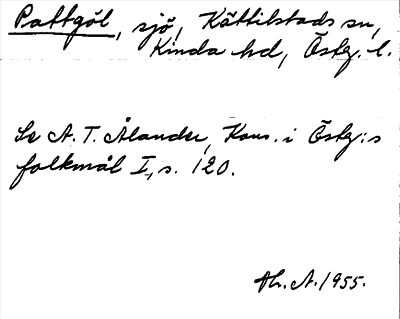 Pattgöl, sjö, Kättilstads sn,
Kinda hd, Östg. l.
Se A. T. Ålander, Kons. i Östg:s
folkmål I, s. 120.
A. 1955.